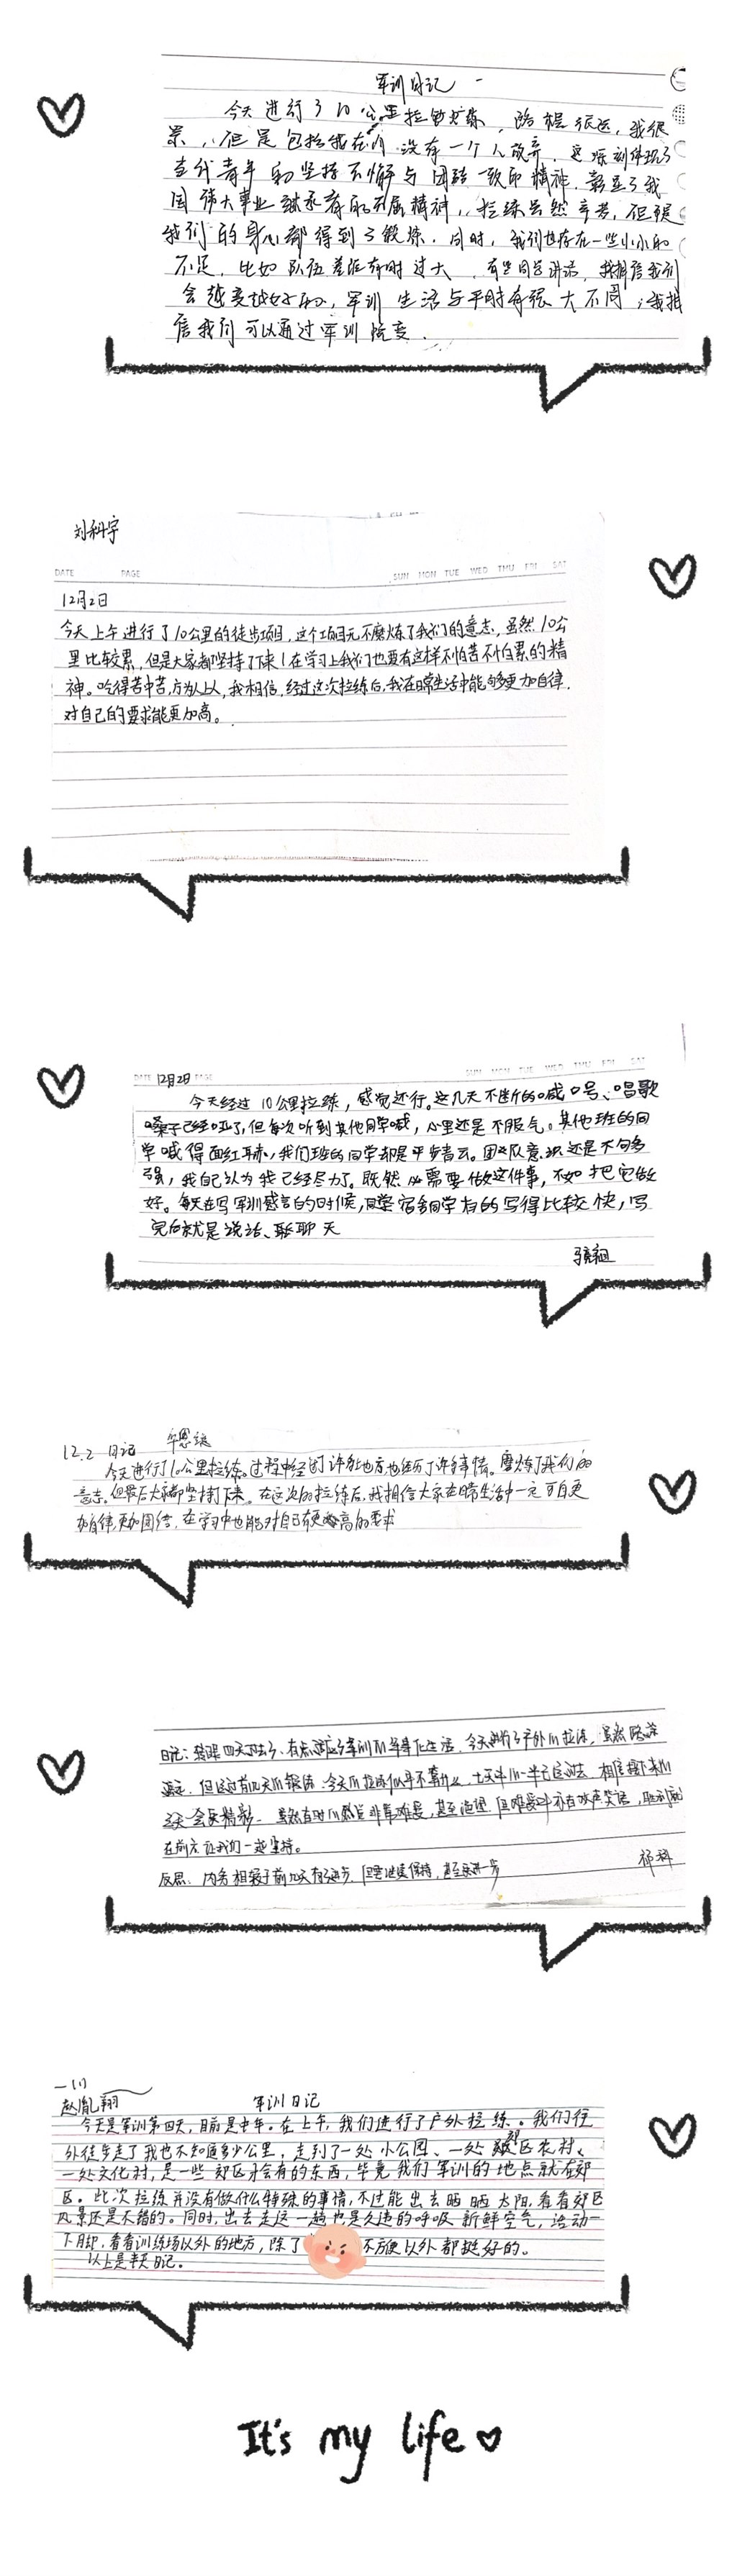 军训日记
今天进行了10公里拉练,路程很远,我很
累,但是包括我在内没有一个人放弃,这
当代青年的坚持不懈与团结一致的精神,彰显了我
国伟大事业继承者的不屈精神,拉练虽然辛苦,但是
我们的身心都得到了锻炼。同时,我们也存在一些小小的
不足,比如队伍差距有时过大,有些同学讲话,我相信我们
会越变越好的,军训生活与平时有很大不同,我相
信我们可以通过军训蜕变。
刘科宇
DATE PAGE SUN MON TUE WED THU FRI SAT
12月2日
今天上午进行了10公里的徒步项目,这个项目无不磨炼了我们的意志,虽然10公
里比较累,但是大家都坚持了下来!在学习上我们也要有这样不怕苦不怕累的精
神。吃得苦中苦,方为人上人,我相信,经过这次拉练后,我在日常生活中能够更加自律,
对自己的要求能更加高。
DATE 12月2日 PAGE SUN MON TUE WED THU FRI SAT
今天经过10公里拉练,感觉还行。这几天不断的喊口号、唱歌
嗓子已经哑了,但每次听到其他同学喊,心里还是不服气。其他班的同
学喊得面红耳赤,我们班的同学却是平步青云。团队意识还是不够多
强,我自认为我已经尽力了。既然必需要做这件事,不如把它做
好。每天在写军训感言的时候,同学宿舍同学有的写得比较快,写
完后就是说话、聊聊天
12.2 日记
今天进行了10公里拉练。过程中经过了许多地方也经历了许多事情。磨炼了我们的
意志。但最后大家都坚持了下来。在这次的拉练后,我相信大家在日常生活中一定可以更
加自律,更加团结,在学习中也能对自己有更高的要求
日记:转眼四天过去了,有点适应了军训的半军事化生活,今天进行了户外的拉练,虽然路途
遥远,但经过前几天的锻炼,今天的拉练似乎不算什么,七天中的一半已经过去,相信接下来的
三天会更精彩。虽然有时的感觉非常难受,甚至绝望,但难受中亦有欢声笑语,胜利就
在前方让我们一起坚持。
反思:内务相较于前几天有了进步,但要继续保持,甚至更进一步
祁科
赵胤翔
军训日记
今天是军训第四天,目前是中午。在上午,我们进行了户外拉练。我们行
外徒步走了我也不知道多少公里,走到了一处小公园、一处郊区农村、
一处文化村,是一些郊区才会有的东西,毕竟我们军训的地点就在郊
区。此次拉练并没有做什么特殊的事情,不过能出去晒晒太阳,看看郊区
风景还是不错的。同时,出去走这一趟也是久违的呼吸新鲜空气,活动一
下脚,看看训练场以外的地方,除了 不方便以外都挺好的。
以上是半天日记。
It's my life